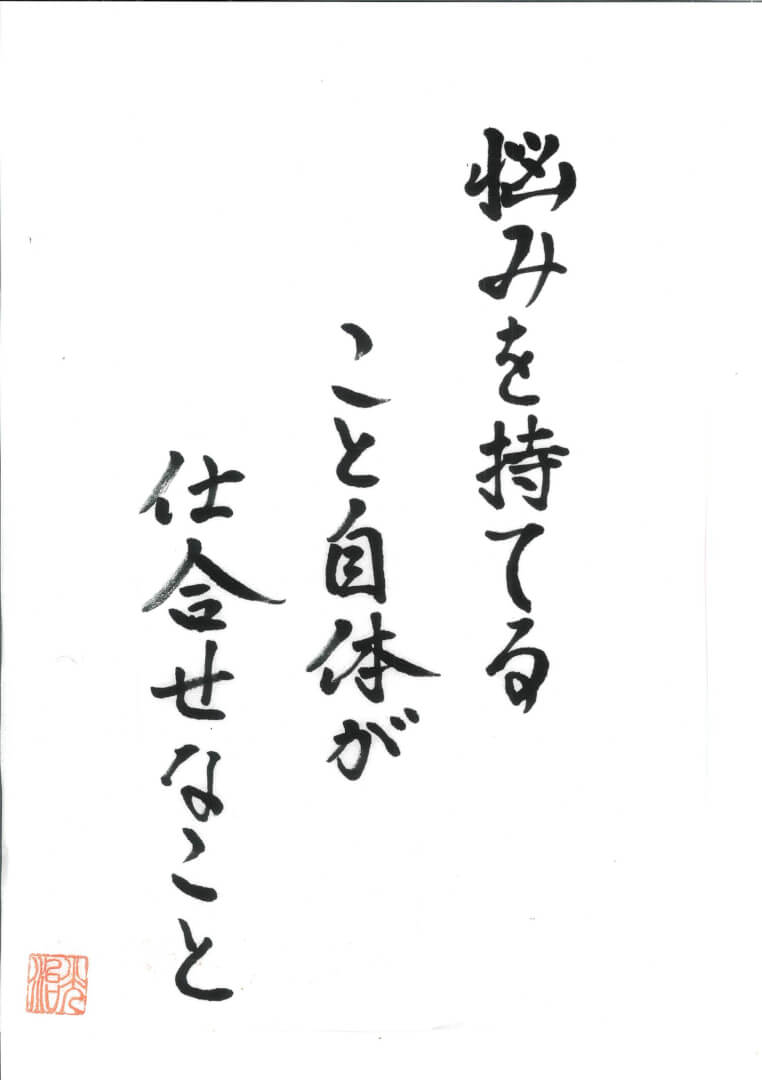 悩みを持てる
こと自体が
仕合せなこと